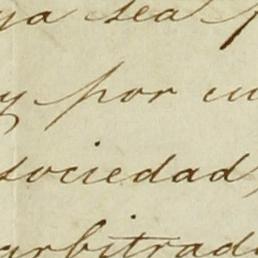 ya sea p
y por cu
sociedad,
arbitrad